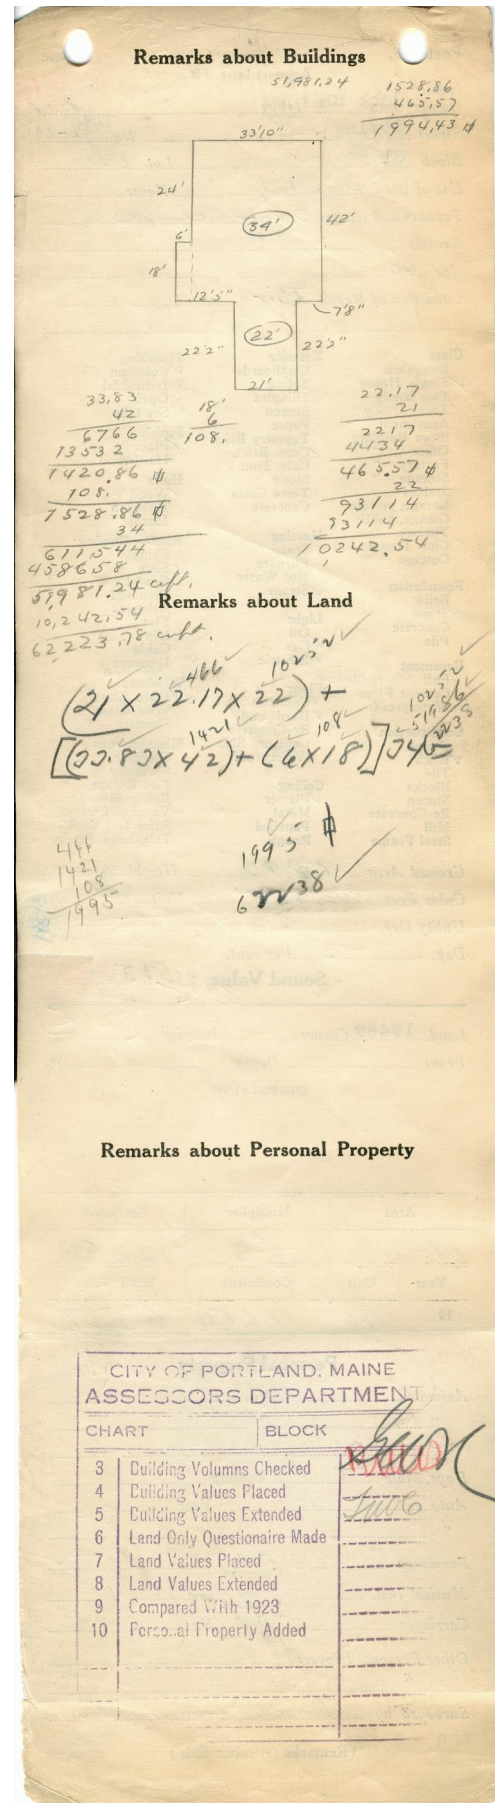 Remarks about Buildings
51,981.24
1528.86
465.57
1994.43 ⌗
33'10"
24'
34'
42'
6'
18'
12'5"
7'8"
22'2"
22'
22'2"
21'
33.83
42
6766
13532
1420.86 ⌗
108.
1528.86 ⌗
34
611544
458658
51981.24 cuft.
10,242.54
62223.78 cuft.
18'
6
108.
22.17
21
2217
4434
465.57 ⌗
22
93114
93114
10242.54
Remarks about Land
466
(21 × 22.17 × 22) +
1421 108
[(33.83 × 42) + (6 × 18)] 34
1995 ⌗
62238
1421
108
1995
Remarks about Personal Property
CITY OF PORTLAND, MAINE
ASSESSORS DEPARTMENT
CHART BLOCK
3 Building Volumns Checked
4 Building Values Placed
5 Building Values Extended
6 Land Only Questionaire Made
7 Land Values Placed
8 Land Values Extended
9 Compared With 1923
10 Personal Property Added